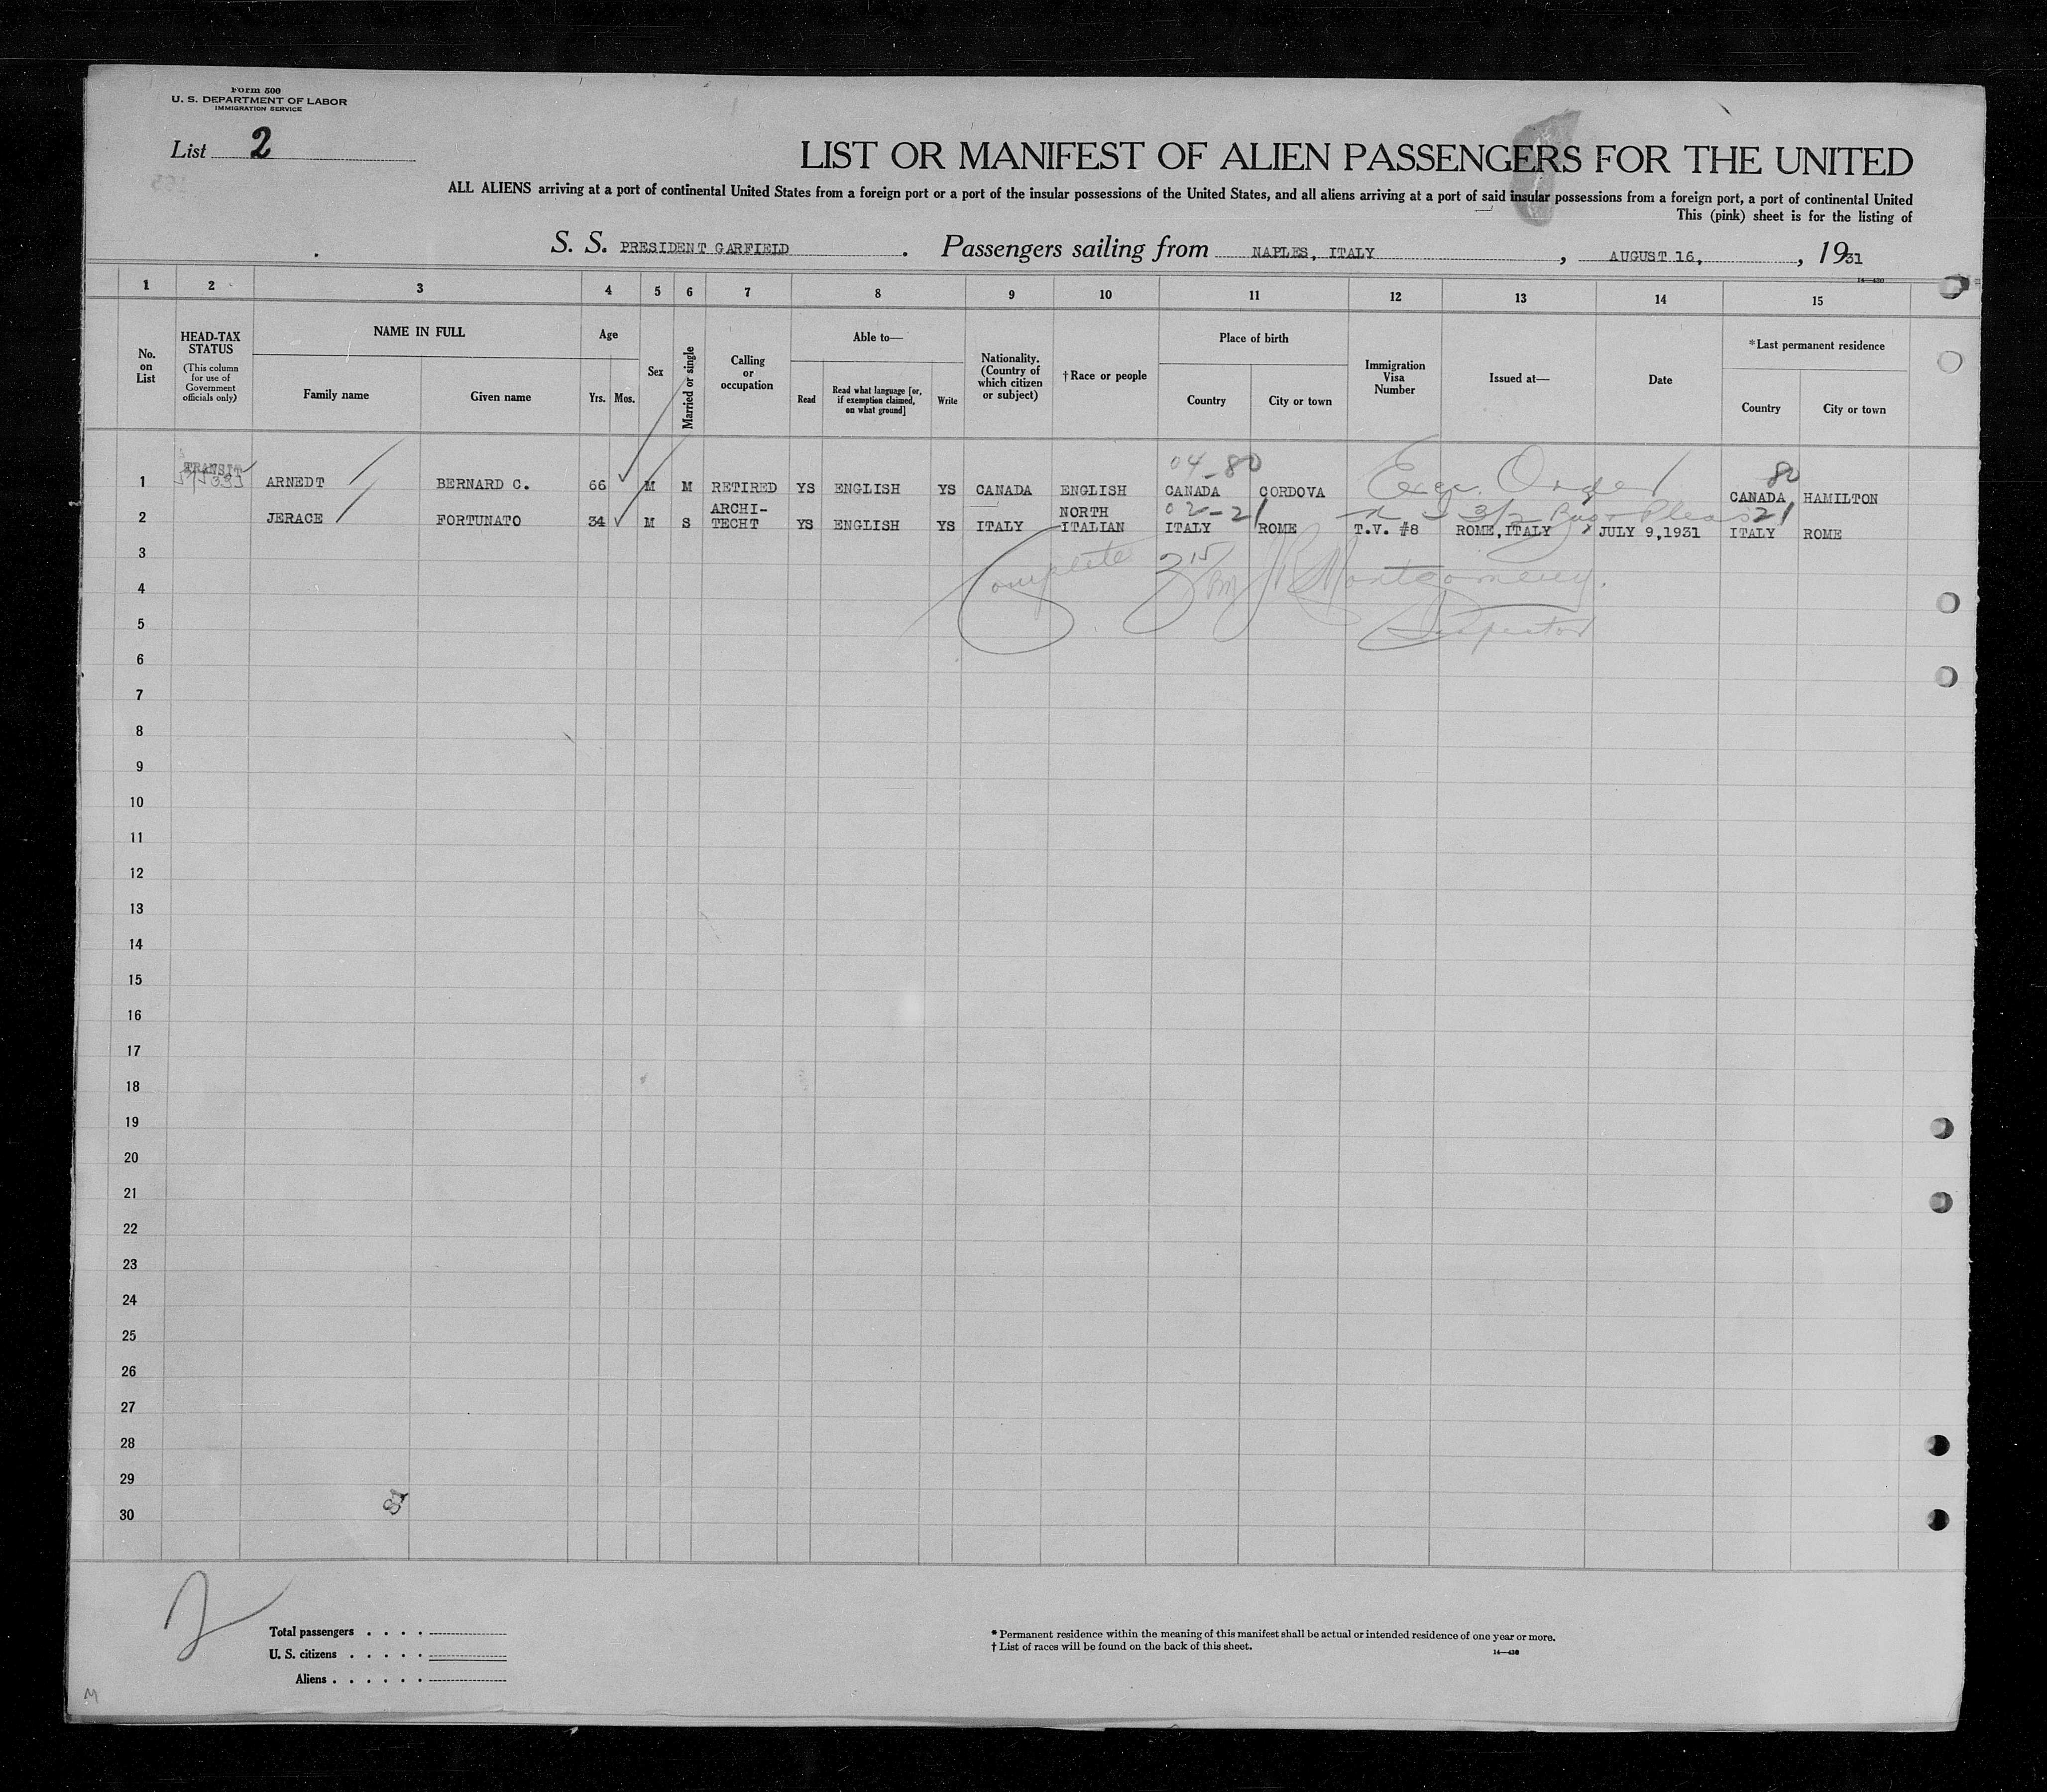 Form 500
U. S. DEPARTMENT OF LABOR
IMMIGRATION SERVICE
List 2
LIST OR MANIFEST OF ALIEN PASSENGERS FOR THE UNITED
ALL ALIENS arriving at a port of continental United States from a foreign port or a port of the insular possessions of the United States, and all aliens arriving at a port of said insular possessions from a foreign port, a port of continental United
This (pink) sheet is for the listing of
S. S. PRESIDENT GARFIELD . Passengers sailing from NAPLES, ITALY , AUGUST 16, , 1931
14—430
1 2 3 4 5 6 7 8 9 10 11 12 13 14 15
No. on List
HEAD-TAX STATUS
(This column for use of Government officials only)
NAME IN FULL
Family name
Given name
Age
Yrs.
Mos.
Sex
Married or single
Calling or occupation
Able to—
Read
Read what language [or, if exemption claimed, on what ground]
Write
Nationality. (Country of which citizen or subject)
†Race or people
Place of birth
Country
City or town
Immigration Visa Number
Issued at—
Date
*Last permanent residence
Country
City or town
04-80 Exec. Order 80
1 TRANSIT ARNEDT BERNARD C. 66 M M RETIRED YS ENGLISH YS CANADA ENGLISH CANADA CORDOVA CANADA HAMILTON
02-21 3/2 21
2 JERACE FORTUNATO 34 M S ARCHI-TECHT YS ENGLISH YS ITALY NORTH ITALIAN ITALY ROME T.V. #8 ROME, ITALY JULY 9,1931 ITALY ROME
3
Complete 3 15 PM J R Montgomery.
4
5
Inspector
6
7
8
9
10
11
12
13
14
15
16
17
18
19
20
21
22
23
24
25
26
27
28
29
30
2
Total passengers . . . .
U. S. citizens . . . . .
Aliens . . . . . .
* Permanent residence within the meaning of this manifest shall be actual or intended residence of one year or more.
† List of races will be found on the back of this sheet.
14—430
M